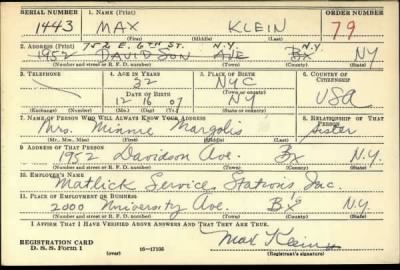 SERIAL NUMBER 1. NAME (Print) ORDER NUMBER
1443 MAX KLEIN 79
(First) (Middle) (Last)
2. ADDRESS (Print) 752 E. 6TH ST. N.Y.
1952 DAVIDSON AVE BX NY
(Number and street or R. F. D. number) (Town) (County) (State)
3. TELEPHONE 4. AGE IN YEARS 5. PLACE OF BIRTH 6. COUNTRY OF CITIZENSHIP
32 NYC
DATE OF BIRTH (Town or county)
12 16 07 NY USA
(Exchange) (Number) (Mo.) (Day) (Yr.) (State or country)
7. NAME OF PERSON WHO WILL ALWAYS KNOW YOUR ADDRESS 8. RELATIONSHIP OF THAT PERSON
Mrs. Minnie Margolis Sister
(Mr., Mrs., Miss) (First) (Middle) (Last)
9. ADDRESS OF THAT PERSON
1952 Davidson Ave. Bx N.Y.
(Number and street or R. F. D. number) (Town) (County) (State)
10. EMPLOYER'S NAME
Matlick Service Stations Inc.
11. PLACE OF EMPLOYMENT OR BUSINESS
2000 University Ave. Bx N.Y.
(Number and street or R. F. D. number) (Town) (County) (State)
I AFFIRM THAT I HAVE VERIFIED ABOVE ANSWERS AND THAT THEY ARE TRUE.
REGISTRATION CARD
D. S. S. Form 1 16—17105 Max Klein
(Registrant's signature)